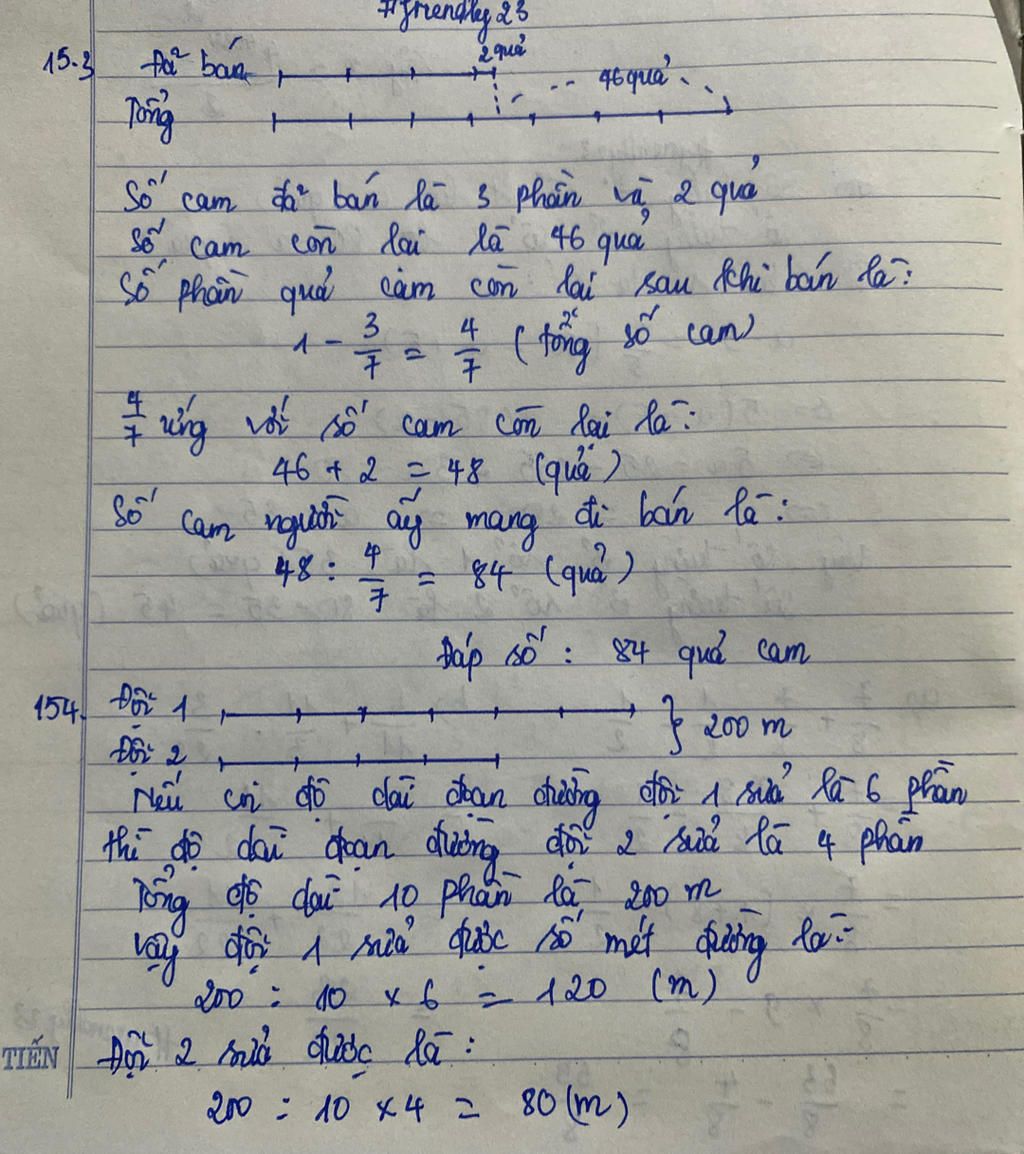 #friendly23
15.3 Đã bán 2 quả 46 quả
Tổng
Số cam đã bán là 3 phần và 2 quả
Số cam còn lại là 46 quả
Số phần quả cam còn lại sau khi bán là:
1 - 3/7 = 4/7 (tổng số cam)
4/7 ứng với số cam còn lại là:
46 + 2 = 48 (quả)
Số cam người ấy mang đi bán là:
48 : 4/7 = 84 (quả)
Đáp số : 84 quả cam
154. Đội 1 } 200 m
Đội 2
Nếu coi độ dài đoạn đường đội 1 sửa là 6 phần
thì độ dài đoạn đường đội 2 sửa là 4 phần
Tổng độ dài 10 phần là 200 m
Vậy đội 1 sửa được số mét đường là:
200 : 10 x 6 = 120 (m)
TIẾN Đội 2 sửa được là :
200 : 10 x 4 = 80 (m)